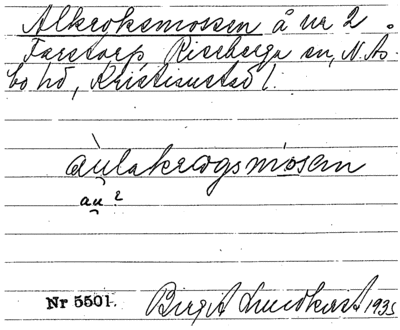 Alkroksmossen å nr 2
Farstorp Riseberga sn, N. Ås-
bo hd, Kristianstad l.
àu̯lakrogsmosen
au̯ ?
Nr 5501.
Birgit Lundkvist 1935